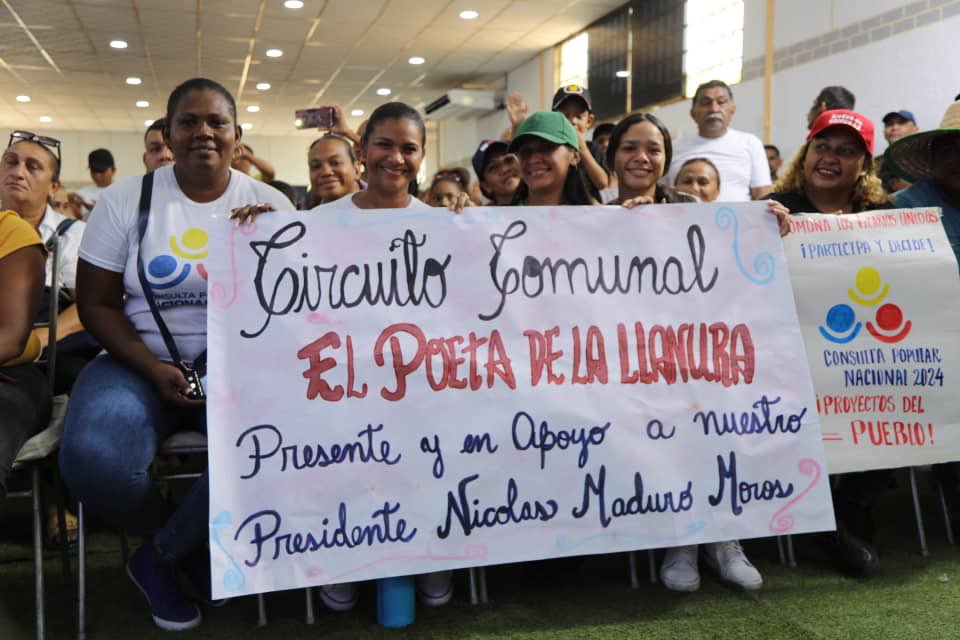 Circuito Comunal
El Poeta de la Llanura
Presente y en Apoyo a nuestro
Presidente Nicolas Maduro Moros
CONSULTA
NACIONAL
¡PARTICIPA Y DECIDE!
CONSULTA POPULAR
NACIONAL 2024
¡PROYECTOS DEL
PUEBLO!